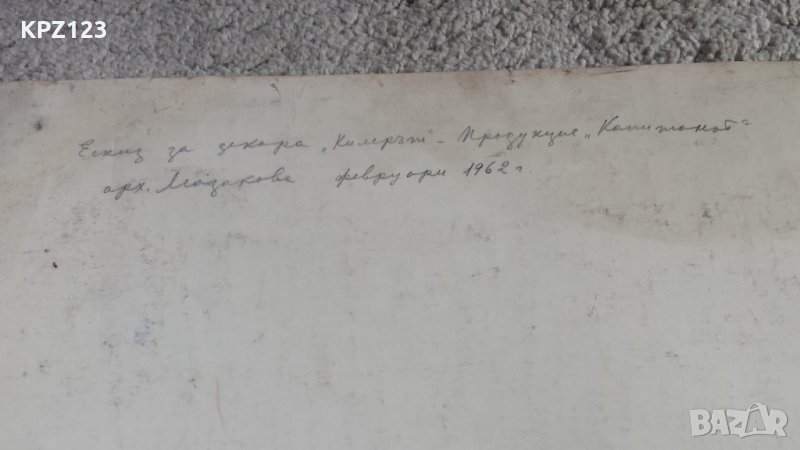 KPZ123
Ескиз за декора „Химрът" - Продукция „Капитанът"
арх. Мазакова февруари 1962 г.
BAZAR